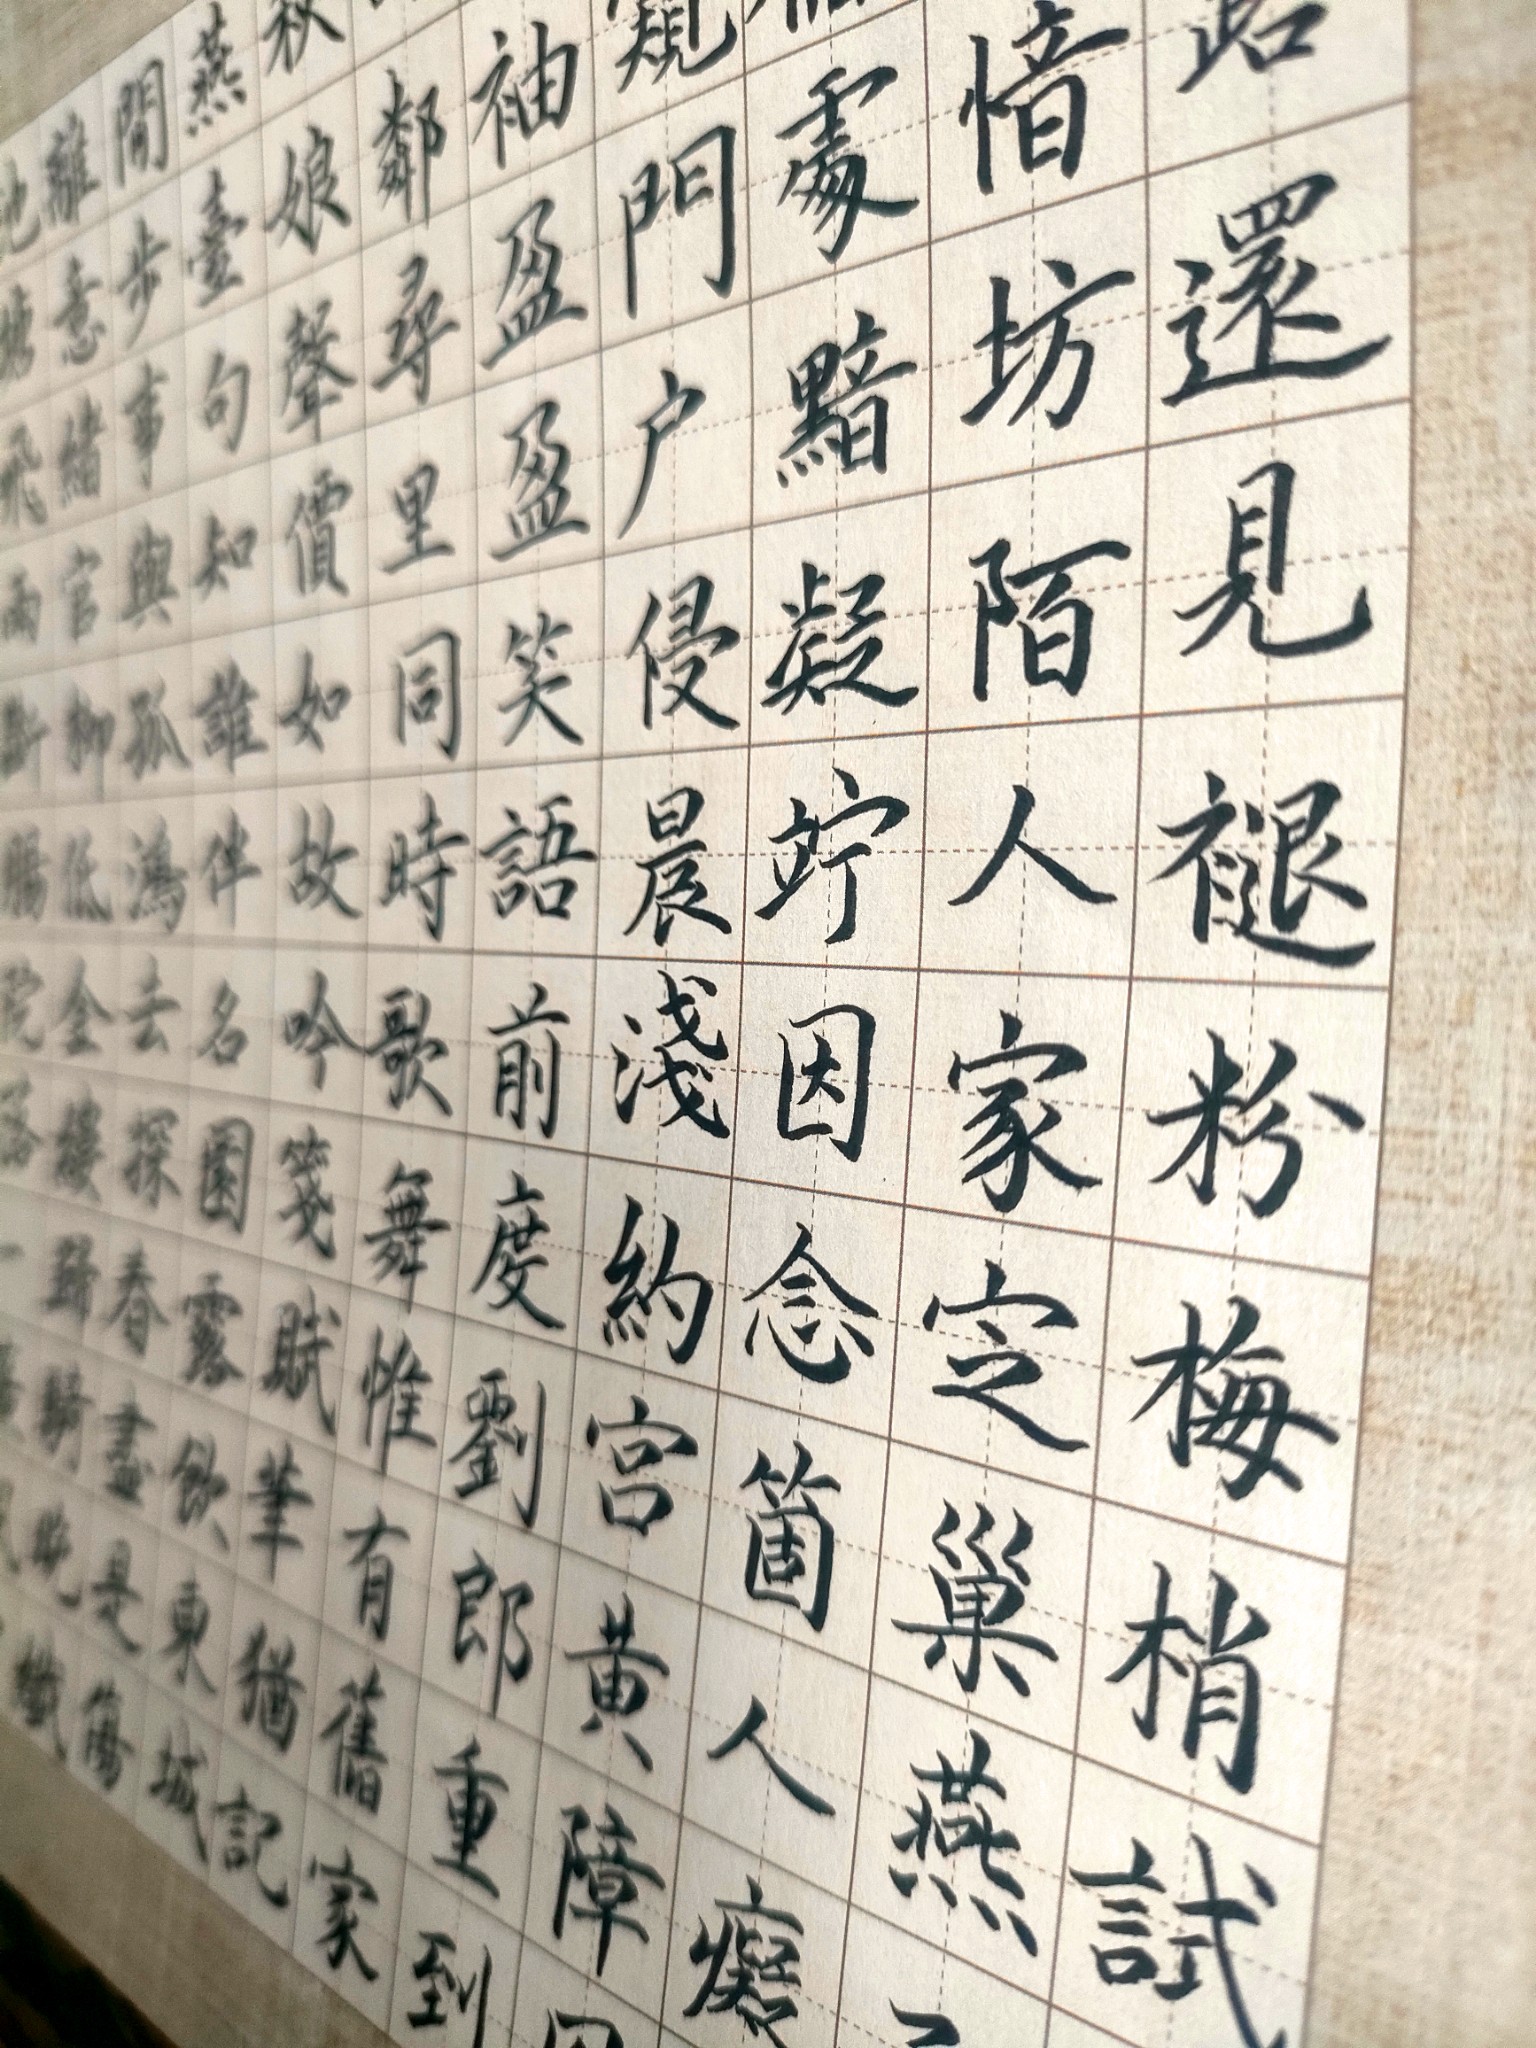 路還見褪粉梅梢試
愔坊陌人家定巢燕
處黯凝竚因念箇人癡
窺門户侵晨淺約宮黃障
袖盈盈笑語前度劉郎重到
鄰尋里同時歌舞惟有舊家
秋娘聲價如故吟箋賦筆猶記
燕臺句知誰伴名園露飲東城
閒步事與孤鴻去探春盡是傷
離意緒官柳低金縷歸騎晚纖
池塘飛雨斷腸院落一